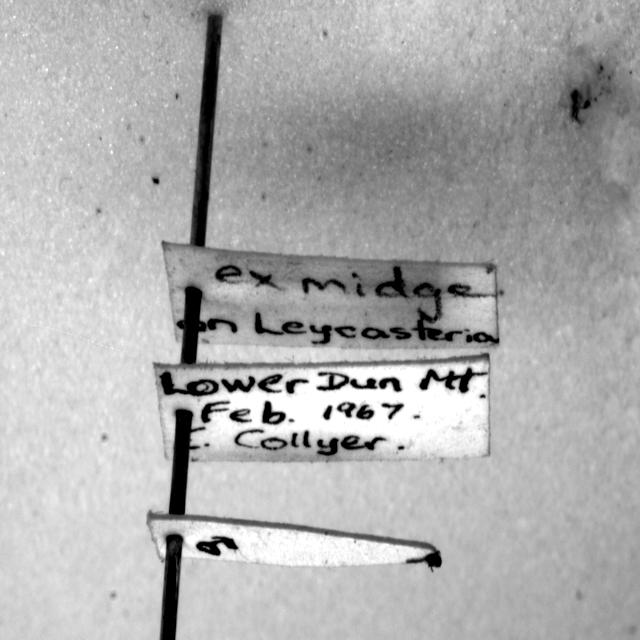 ex midge
on Leycasteria
Lower Dun Mt.
Feb. 1967.
Collyer.